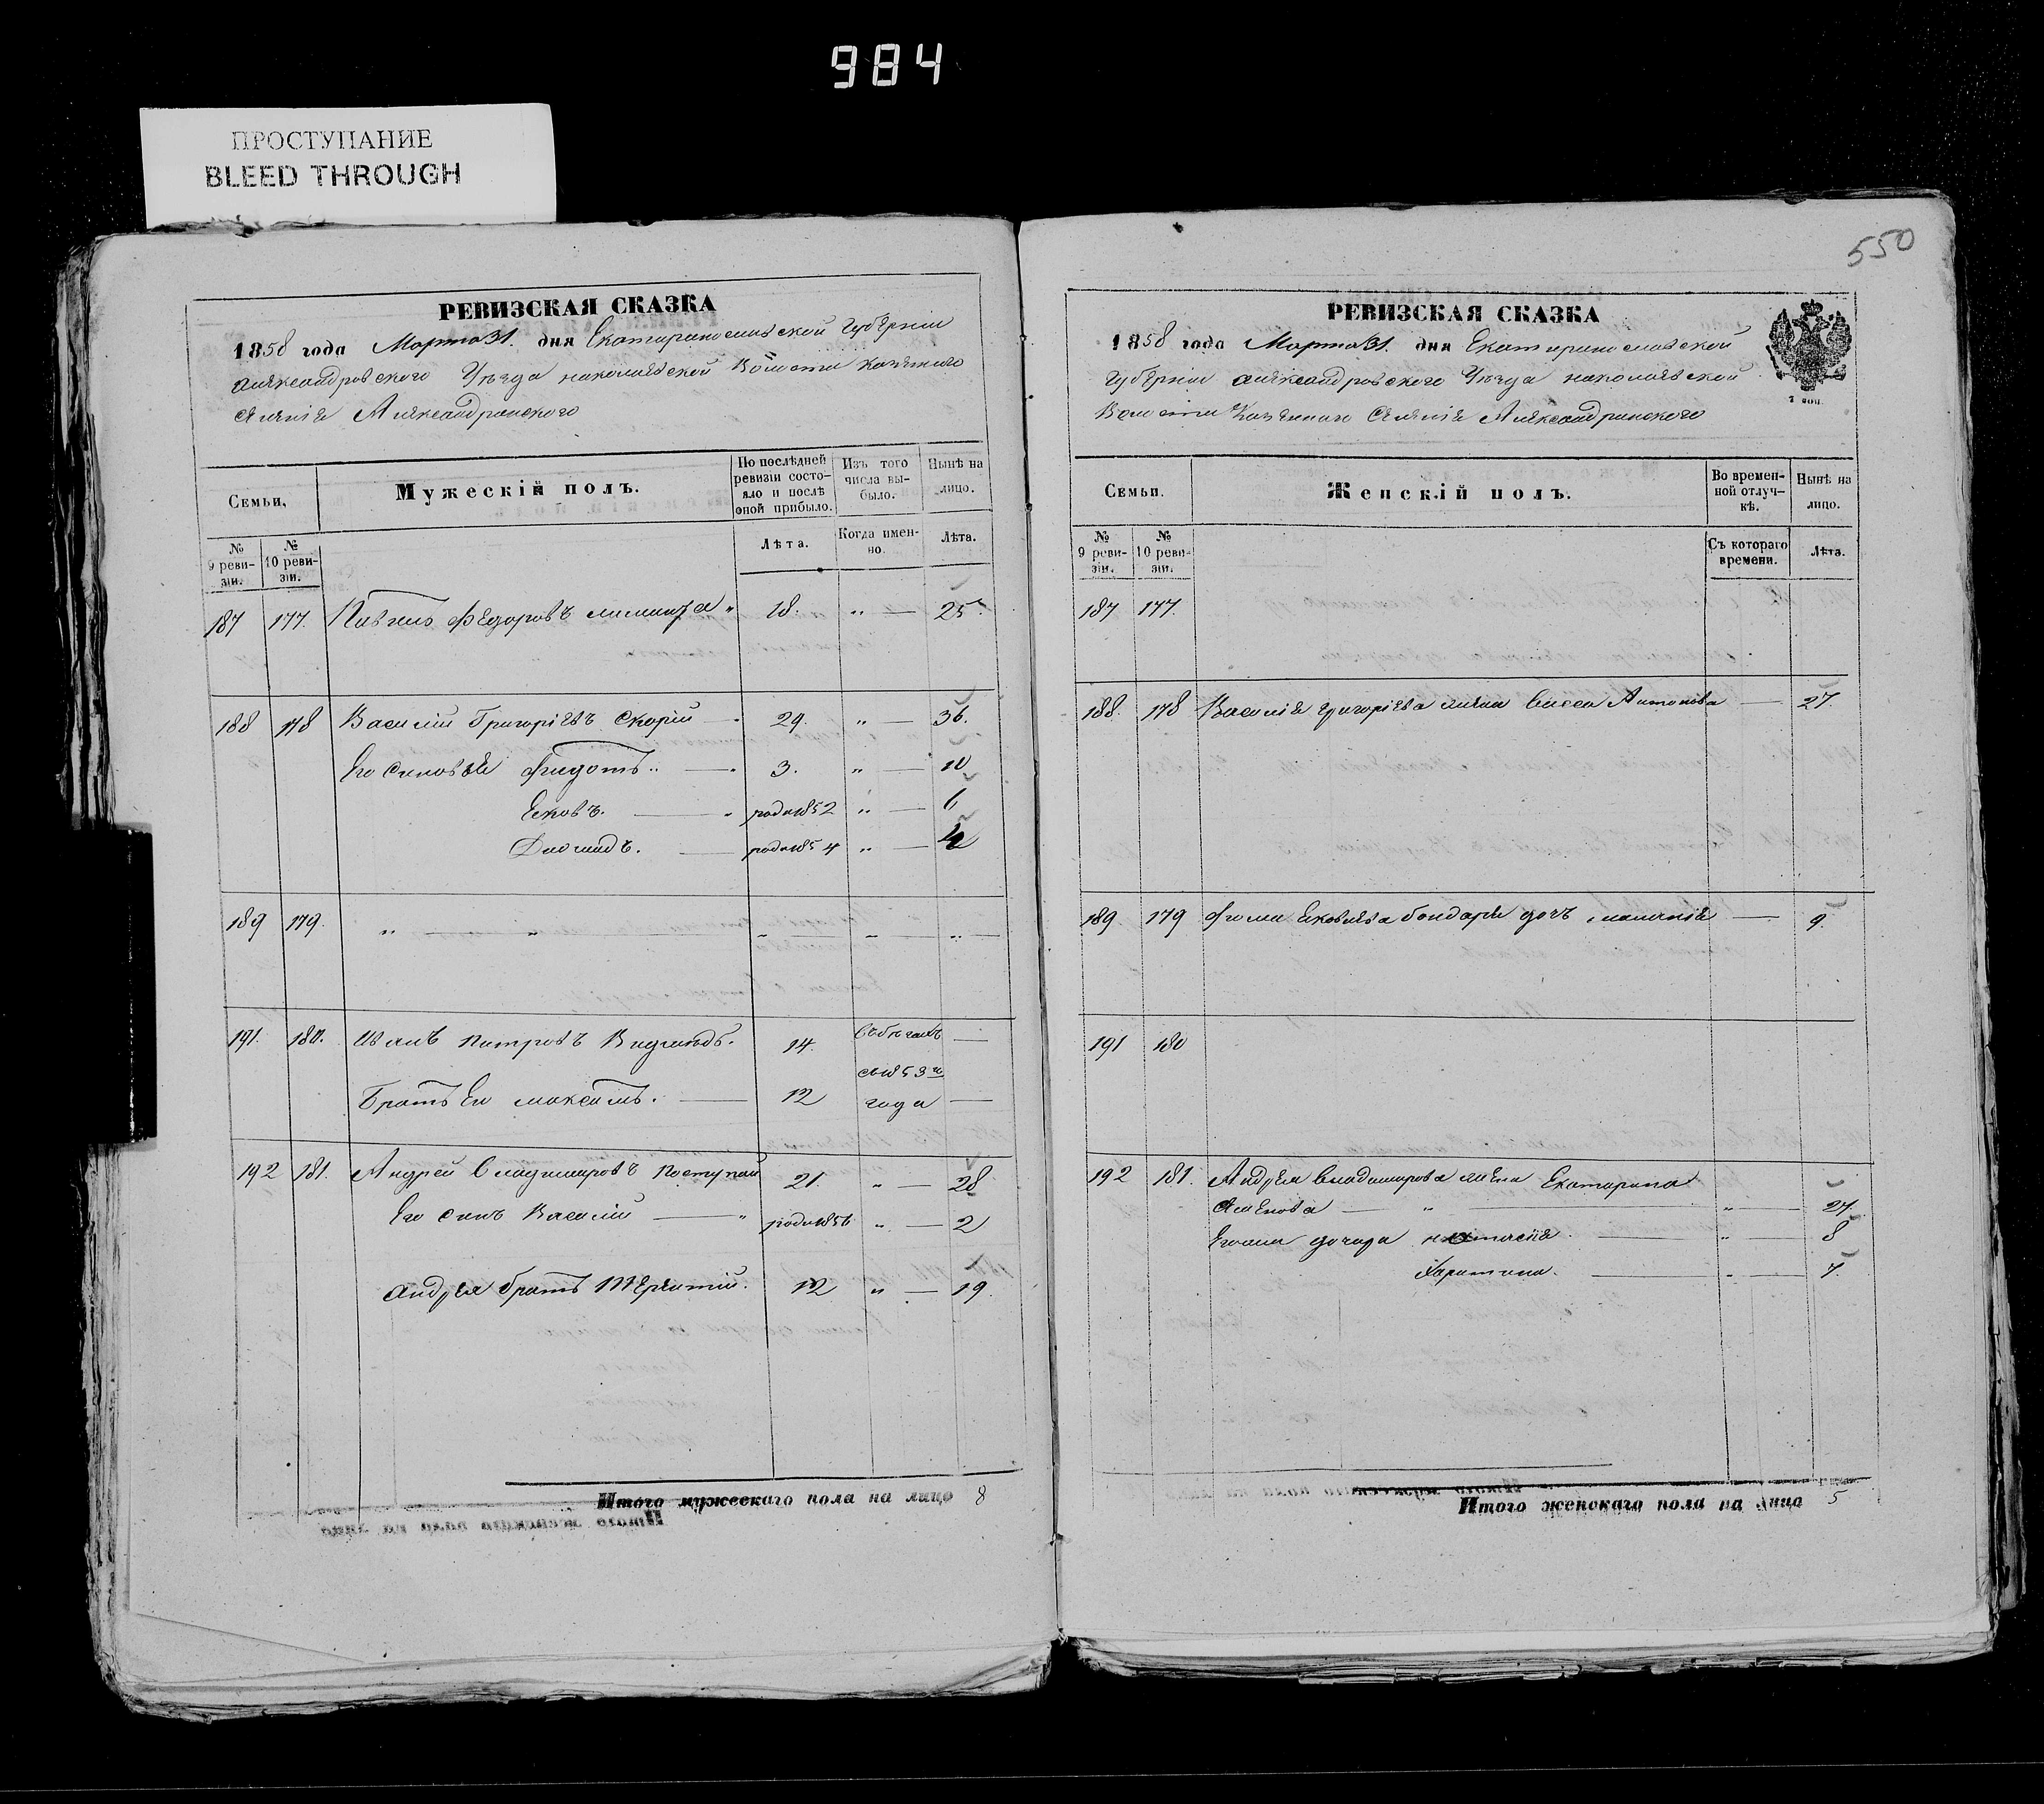 984
ПРОСТУПАНИЕ
BLEED THROUGH
550
РЕВИЗСКАЯ СКАЗКА
1858 года Марта 31. дня Екатеринославской Губерніи
Александровскаго Уѣзда Николаевской Волости Казеннаго
Селенія Александринскаго
Семьи,
Мужескій полъ.
По послѣдней ревизіи состояло и послѣ оной прибыло.
Изъ того числа выбыло.
Нынѣ на лицо.
№ 9 ревизіи.
№ 10 ревизіи.
Лѣта.
Когда именно.
Лѣта.
187 177. Павелъ Федоровъ " 18. " — 25.
188 178 Василій Григоріевъ Скорій — " 29. " — 36.
Его Сыновья Федотъ.. — " 3. " — 10
Яковъ. — " род. 1852 " — 6
Діомидъ. — род. 1854 " — 4
189 179. " — " — " — " — " —
191. 180. Иванъ Петровъ 14. —
Братъ Его Максимъ. — 12 съ 1853го года —
192 181. Андрей Владимировъ Поступай 21. " — 28
Его Сынъ Василій — " род. 1856 " — 2
Андрея братъ Терентій. 12 " — 19.
Итого мужескаго пола на лицо 8
РЕВИЗСКАЯ СКАЗКА
1858 года Марта 31. дня Екатеринославской
Губерніи Александровскаго Уѣзда Николаевской
Волости Казеннаго Селенія Александринскаго
Семьи.
Женскій полъ.
Во временной отлучкѣ.
Нынѣ на лицо.
№ 9 ревизіи.
№ 10 ревизіи.
Съ котораго времени.
Лѣта.
187 177.
188. 178 Василія Григоріева жена Антонова — 27.
189. 179 Фомы Яковлева Бондаря дочь — 9.
191 180
192 181. Андрея Владимирова жена Екатерина
Семенова — " — " — 27.
дочери — " — 8
Харитина. — " — 7.
Итого женскаго пола на лицо 5